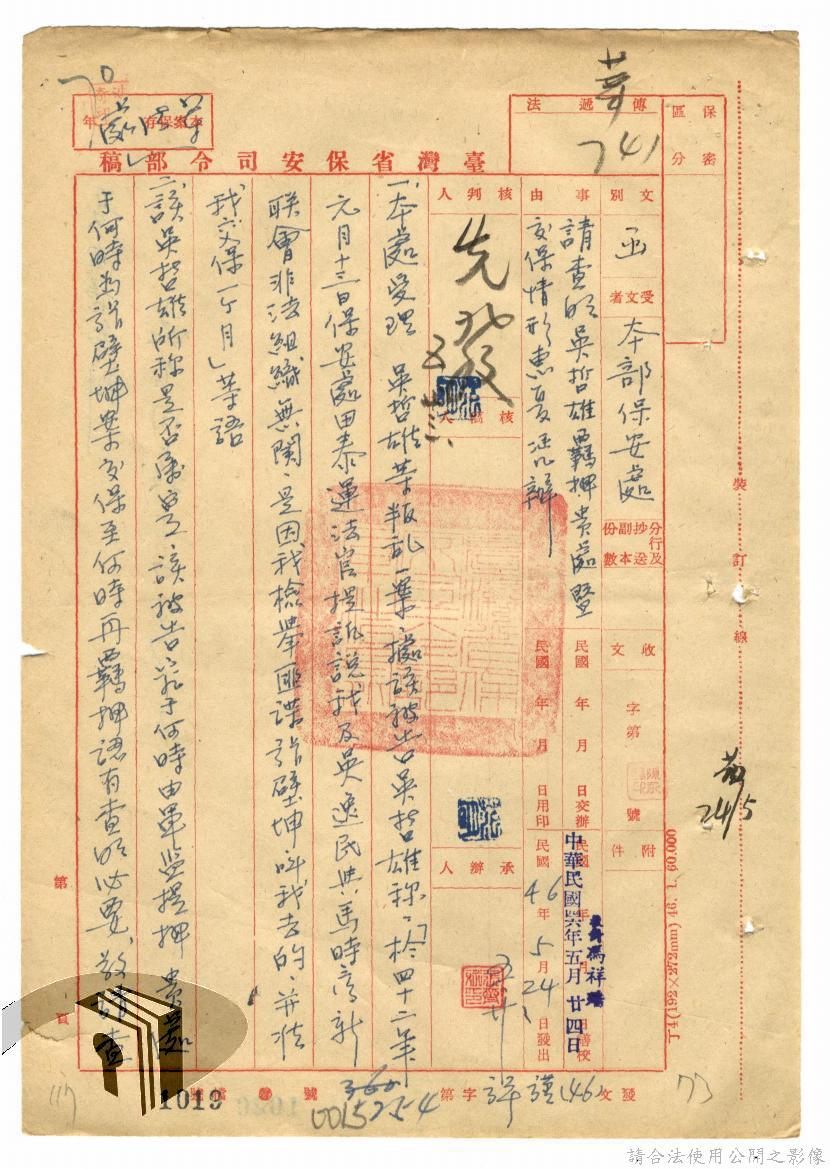 保密
區分
傳遞法
741
本案保存 年
臺灣省保安司令部稿
文別 函
受文者 本部保安處
分行及抄送副本份數
事由
請查明吳哲雄羈押貴處暨
交保情形惠復憑辦
核判人
先發
核稿
承辦人
收文 字第 號
附件
民國 年 月 日交辦
民國 年 月 日用印
民國46年5月24日發出
中華民國四六年五月廿四日
馮祥
繕校
裝訂線
24/5
T4(192×272mm) 46. 1. 60.000
一、本處受理 吳哲雄等叛乱一案,據該被告吳哲雄称:「於四十二年
元月十三日保安處田泰運法官提訊說我及吳逸民與馬時彥新
联會非法組織無関,是因我檢舉匪諜 壁坤叫我去的,並准
我交保一个月」等語
二、該吳哲雄所称是否屬實,該被告究于何時由軍監提押 貴處
于何時為 壁坤案交保至何時再羈押認有查明必要,敬請查
第 頁
發文(46)謹詳字第 號
001525-4
檔號
1019
117
73
70
請合法使用公開之影像